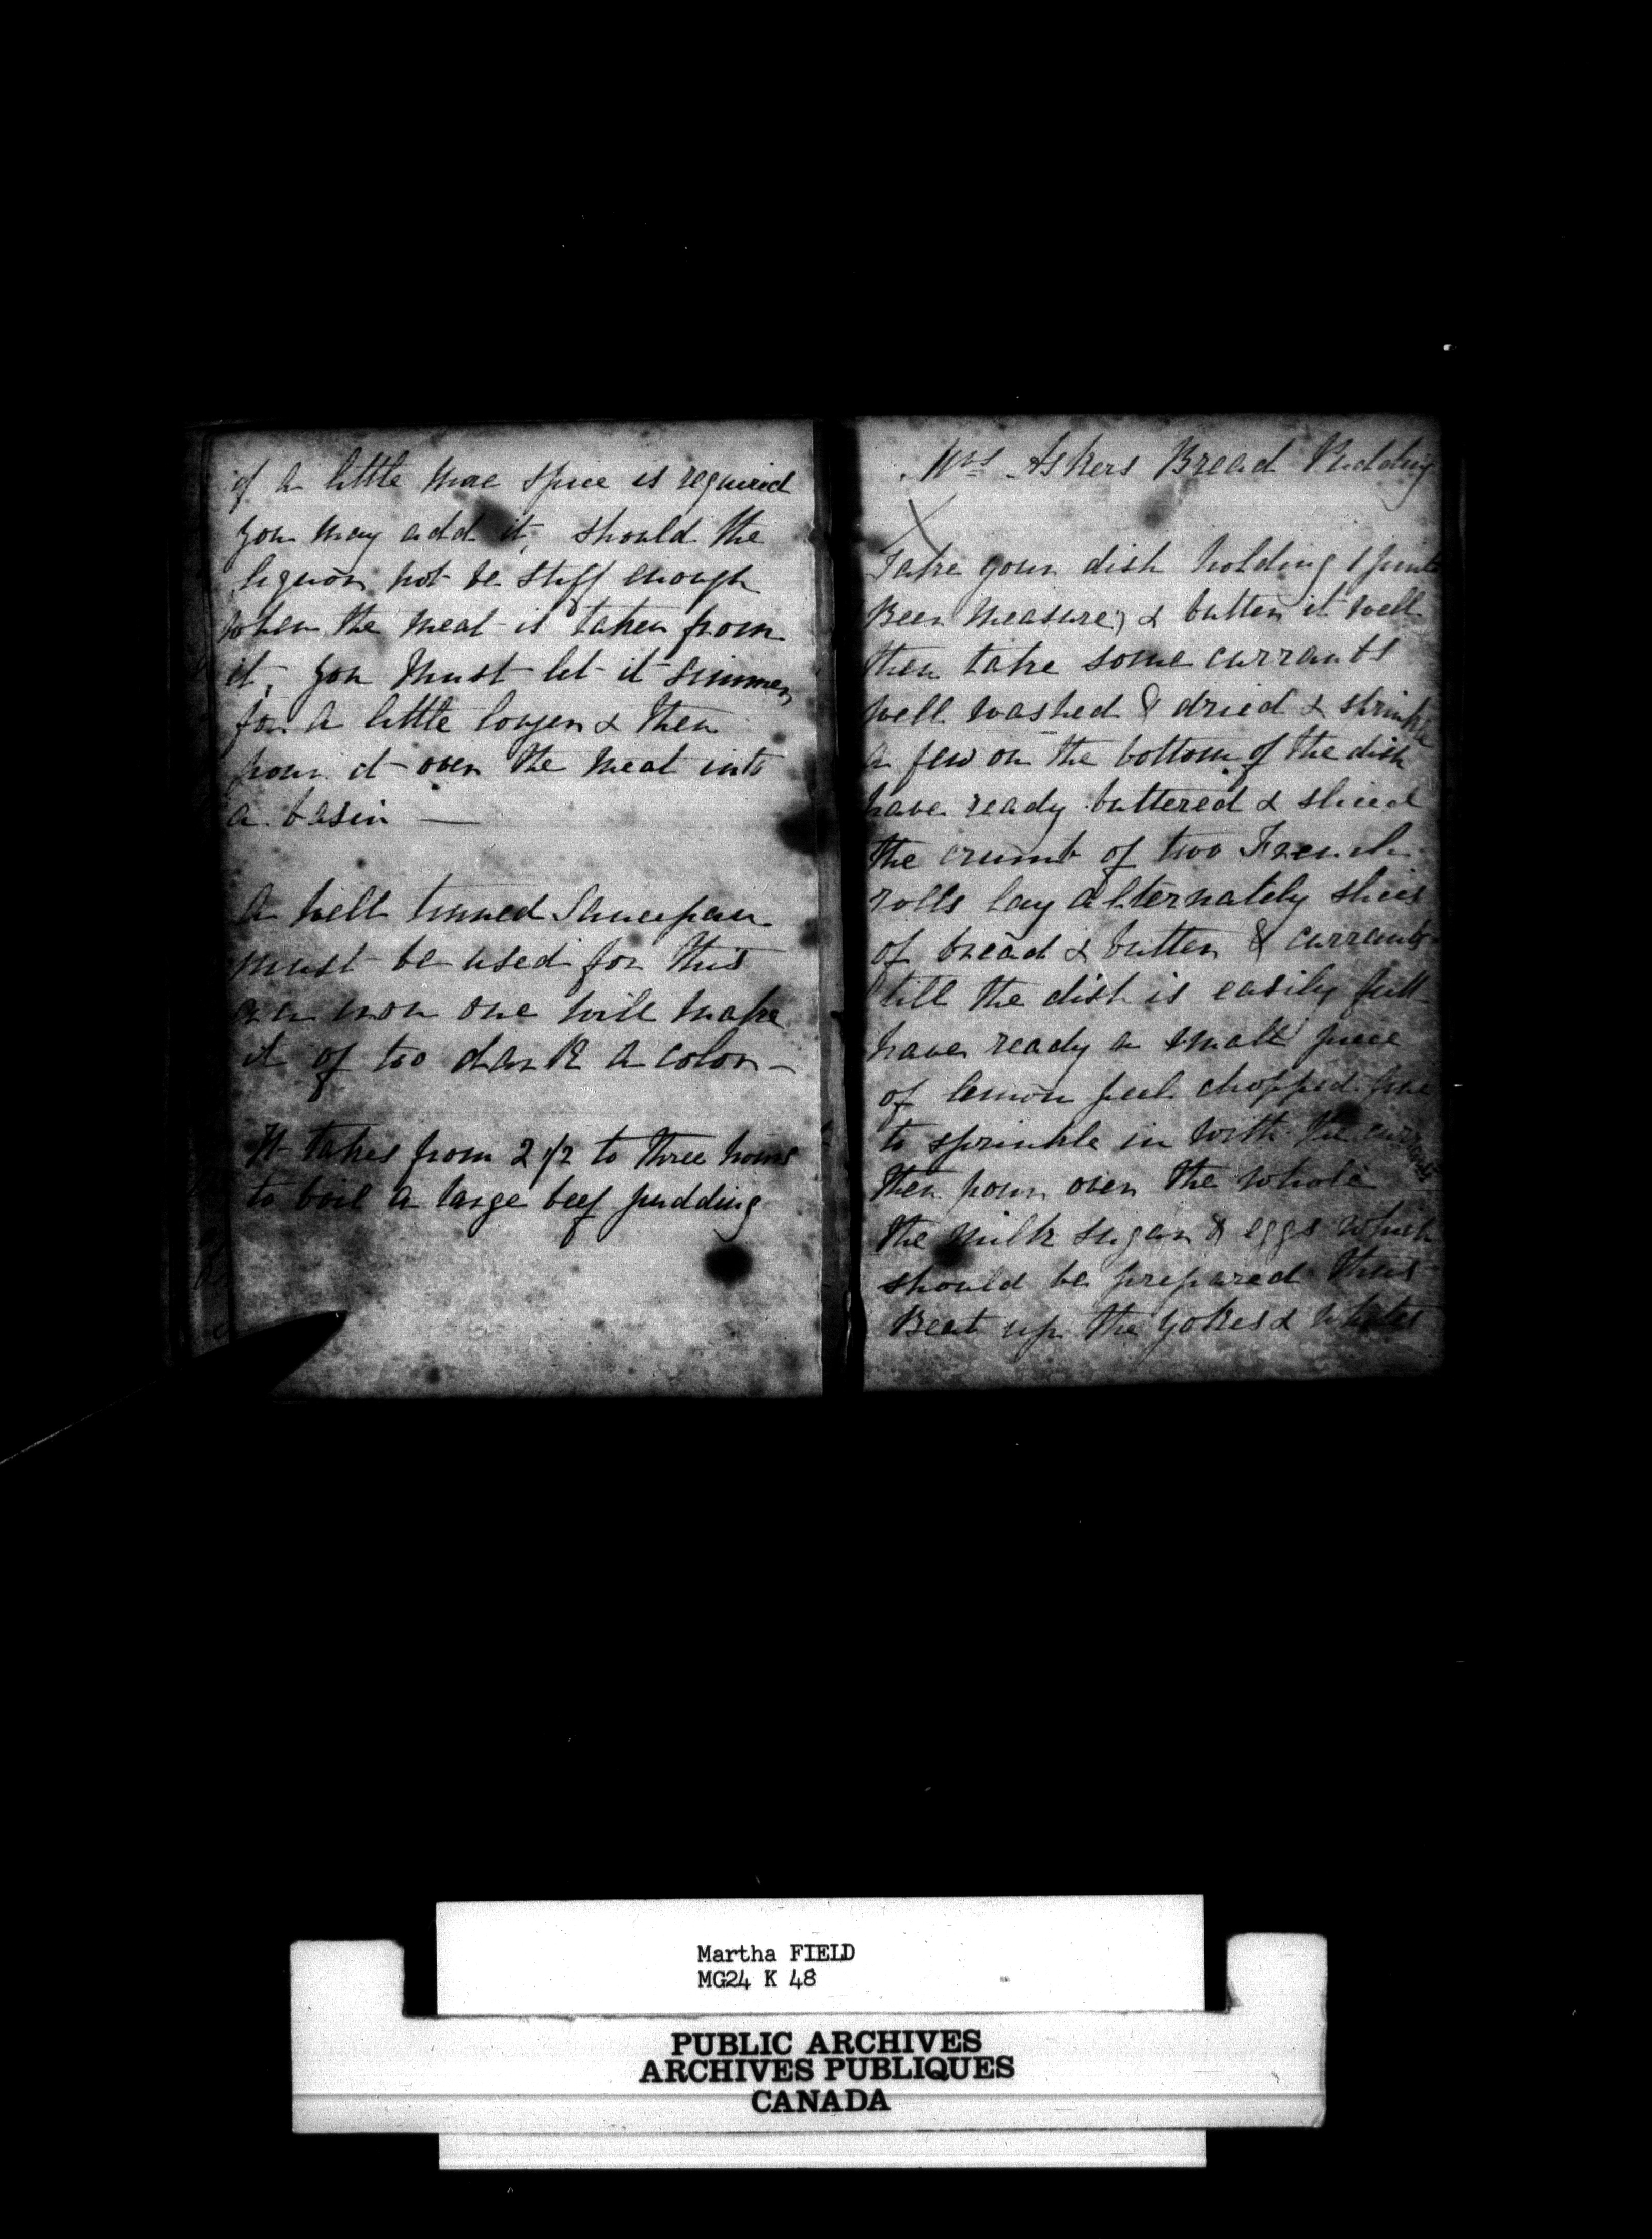 if a little more spice is required
you may add it, should the
liquor not be stiff enough
when the meat is taken from
it, you must let it simmer
for a little longer & then
pour it over the meat into
a basin —
A well tinned Saucepan
must be used for this
an iron one will make
it of too dark a color —
It takes from 2 1/2 to three hours
to boil a large beef pudding
Mrs Askers Bread Pudding
Take your dish holding 1 pint
Beer measure, & butter it well
then take some currants
well washed & dried & sprinkle
a few on the bottom of the dish
have ready buttered & sliced
the crumb of two French
rolls lay alternately slices
of bread & butter & currants
till the dish is easily full
have ready a small piece
of lemon peel chopped fine
to sprinkle in with the currants
then pour over the whole
the milk sugar & eggs which
should be prepared thus
Beat up the yokes & whites
Martha FIELD
MG24 K 48
PUBLIC ARCHIVES
ARCHIVES PUBLIQUES
CANADA